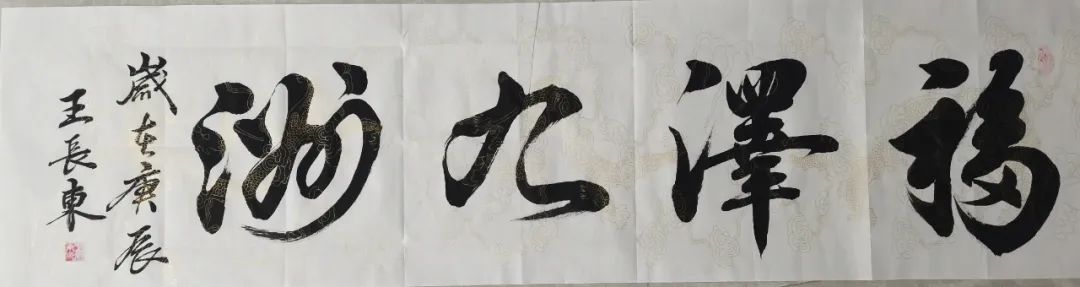 福澤九洲
歲在庚辰
王長東